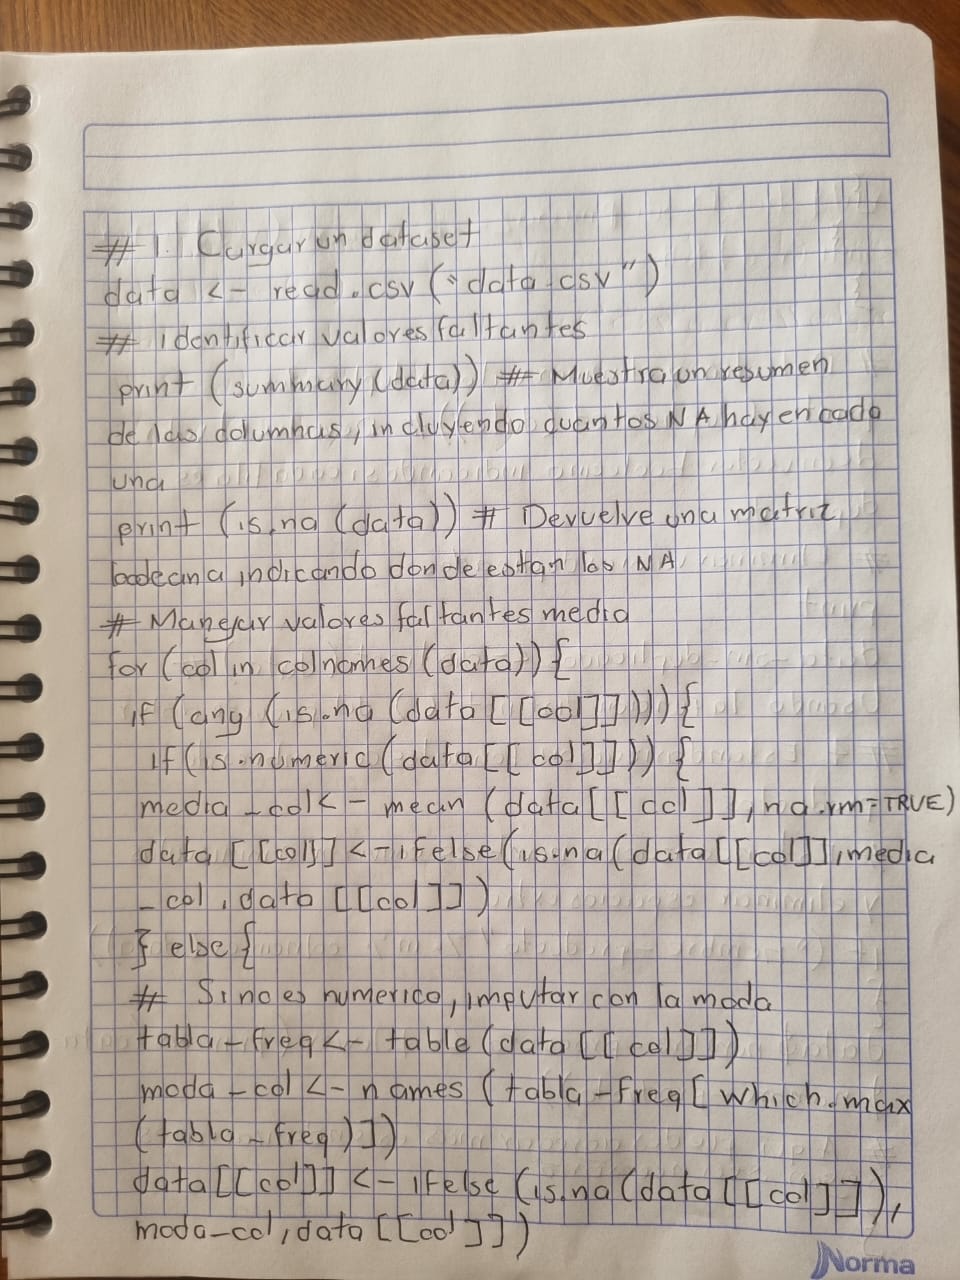 # 1. Cargar un dataset
data <- read.csv("data.csv")
# identificar valores faltantes
print (summary(data)) # Muestra un resumen
de las columnas, incluyendo cuantos NA hay en cada
una
print (is.na (data)) # Devuelve una matriz
booleana indicando donde estan los NA
# Manejar valores faltantes media
for (col in colnames (data)) {
if (any (is.na (data [[col]]))) {
if (is.numeric (data [[col]])) {
media_col <- mean (data [[col]], na.rm=TRUE)
data [[col]] <- ifelse (is.na (data [[col]], media
_col, data [[col]])
} else {
# Si no es numerico, imputar con la moda
tabla_freq <- table (data [[col]])
moda_col <- names (tabla_freq [which.max
(tabla_freq)])
data [[col]] <- ifelse (is.na (data [[col]]),
moda_col, data [[col]])
Norma